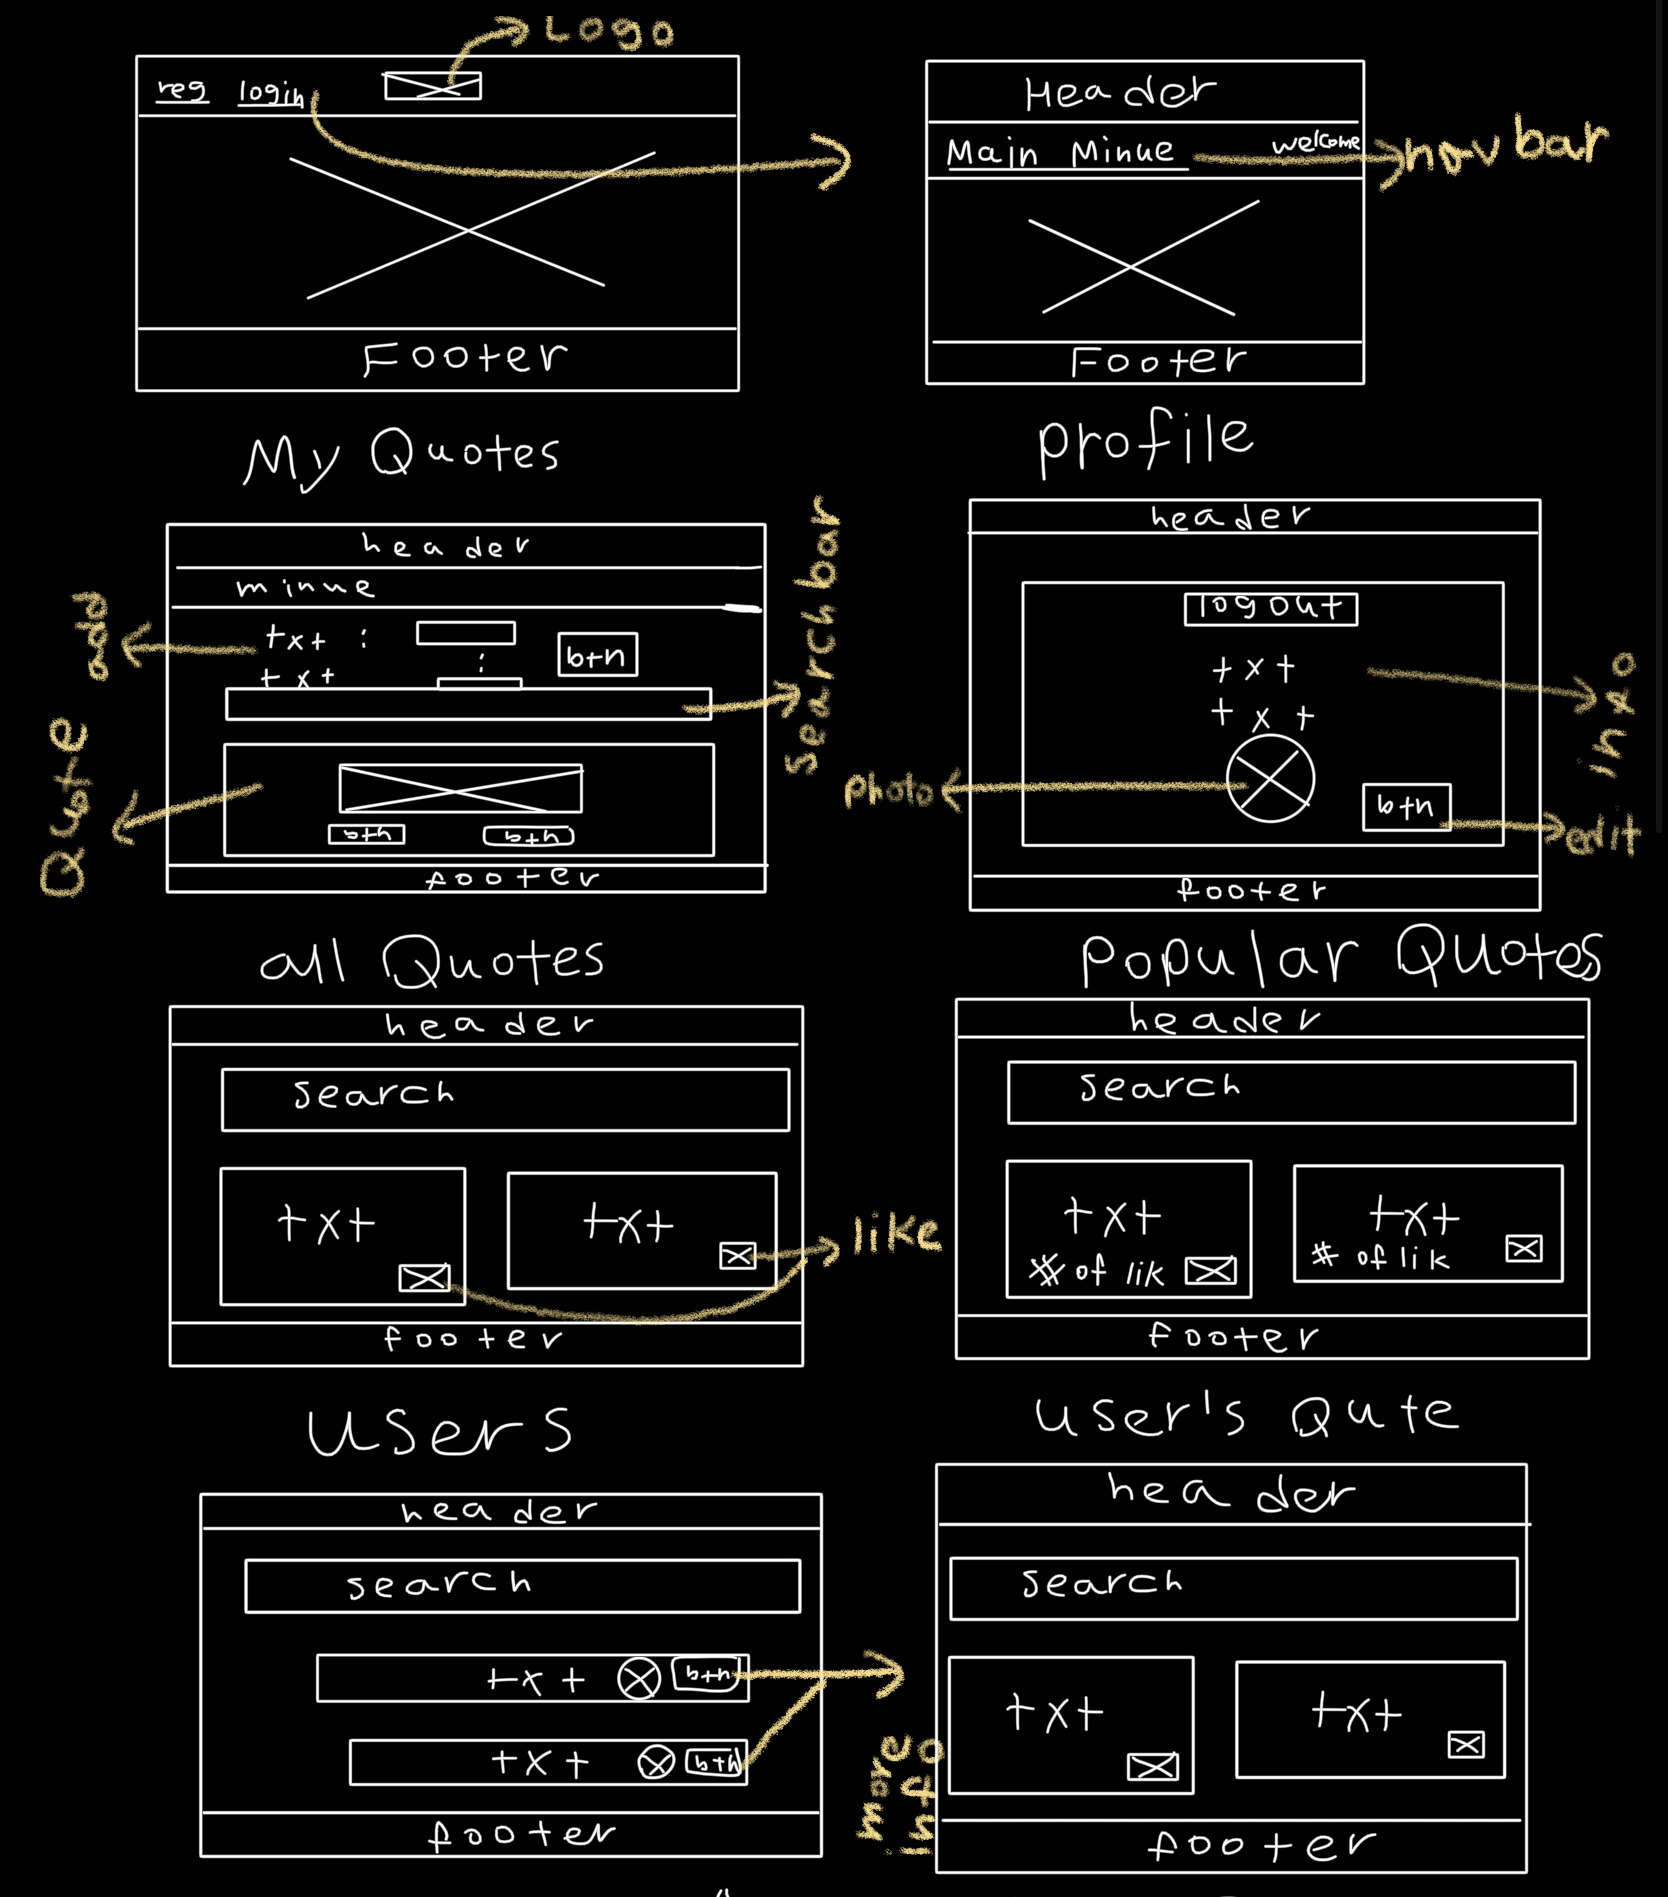 Logo
reg login
Footer
Header
Main Minue welcome
nav bar
Footer
My Quotes
header
minue
txt :
txt :
btn
add
search bar
Quote
btn btn
footer
profile
header
logout
txt
txt
info
photo
btn
edit
footer
all Quotes
header
search
txt txt
like
footer
Popular Quotes
header
search
txt txt
# of lik # of lik
footer
users
header
search
txt btn
txt btn
footer
more info
user's Qute
header
search
txt txt
footer